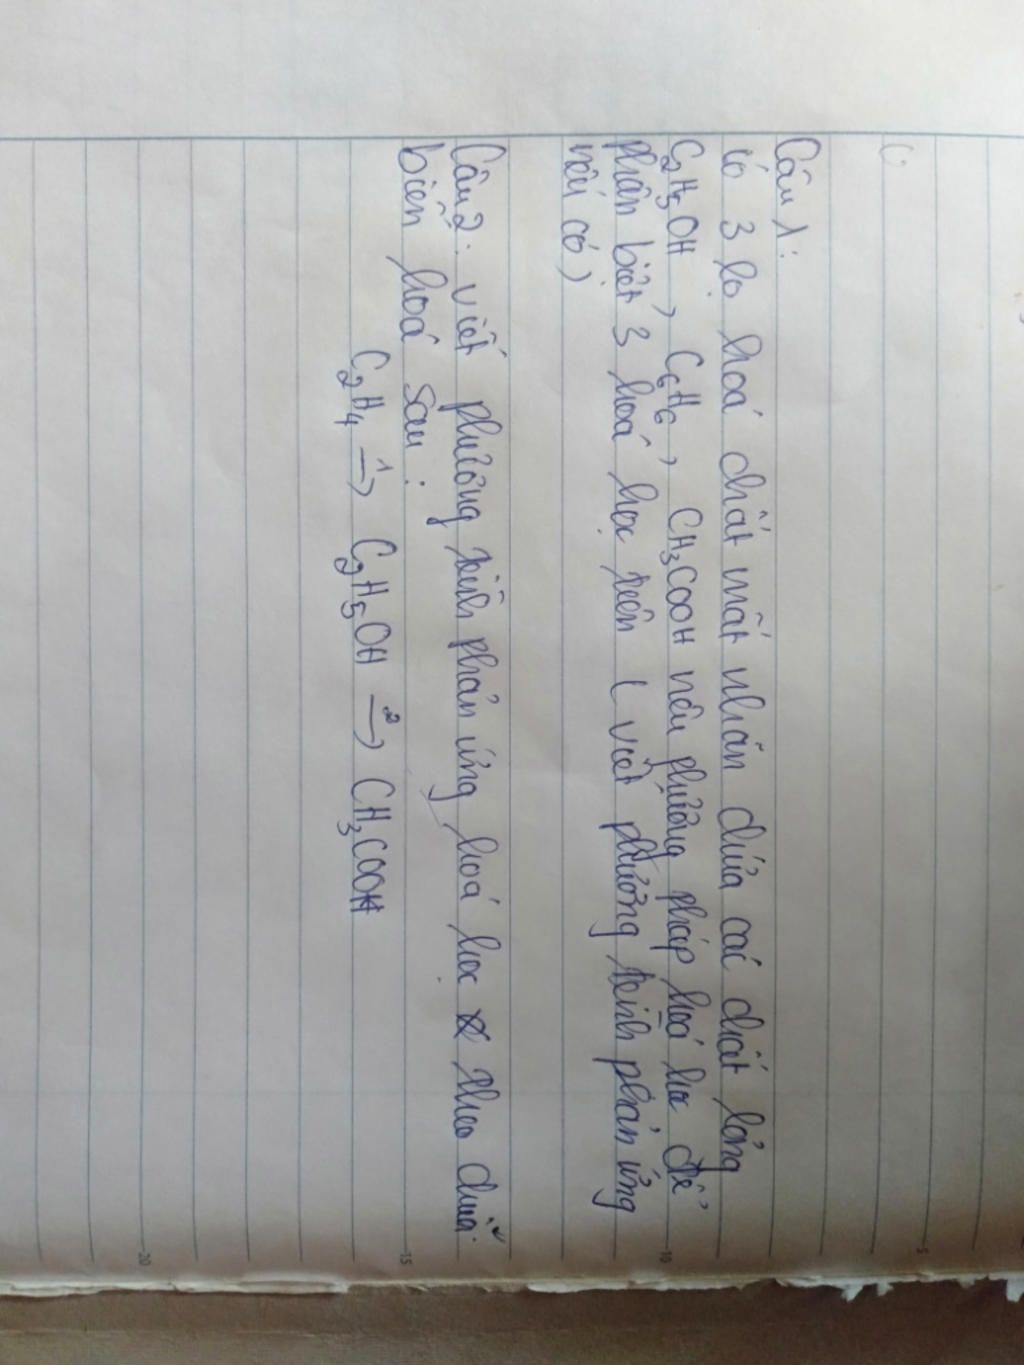 Câu 1:
Có 3 lọ hoá chất mất nhãn chứa các chất lỏng
C₂H₅OH, C₆H₆, CH₃COOH nêu phương pháp hoá học để
phân biệt 3 hoá học trên (viết phương trình phản ứng
nếu có)
Câu 2: viết phương trình phản ứng hoá học theo chuỗi
biến hoá sau:
C₂H₄ →¹ C₂H₅OH →² CH₃COOH
5
10
15
20